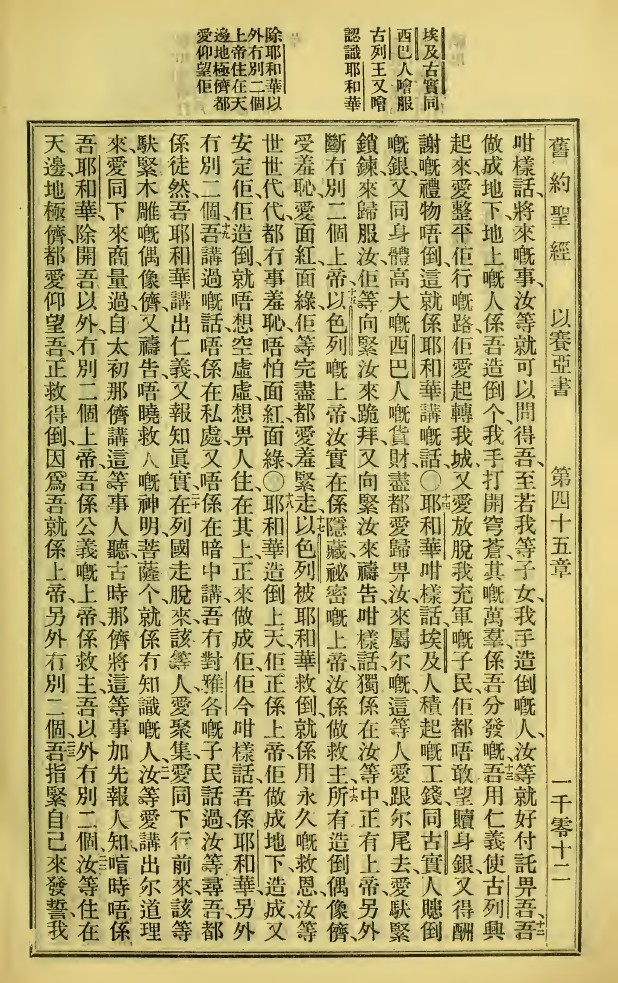 埃及古實同
西巴人噲服
古列王又噲
認識耶和華
除耶和華以
外冇別二個
上帝住在天
邊地極儕都
愛仰望佢
舊約聖經 以賽亞書 第四十五章 一千零十二
咁樣話、將來嘅事、汝等就可以問得吾、至若我等子女、我手造倒嘅人、汝等就好付託畀吾、吾十二
做成地下地上嘅人係吾造倒个、我手打開穹蒼、其嘅萬羣係吾分發嘅、十三吾用仁義使古列興
起來、愛整平佢行嘅路、佢愛起轉我城、又愛放脫我充軍嘅子民、佢都唔敢望贖身銀、又得酬
謝嘅禮物唔倒、這就係耶和華講嘅話、〇十四耶和華咁樣話、埃及人積起嘅工錢、同古實人賺倒
嘅銀、又同身體高大嘅西巴人嘅貨財、盡都愛歸畀汝、來屬尔嘅、這等人愛跟尔尾去、愛馱緊
鎖鍊來歸服汝、佢等向緊汝來跪拜、又向緊汝來禱告、咁樣話、獨係在汝等中正有上帝、另外
斷冇別二個上帝、十五以色列嘅上帝、汝實在係隱藏祕密嘅上帝、汝係做救主、十六所有造倒偶像儕、
受羞恥、愛面紅面綠、佢等完盡都愛羞緊走、十七以色列被耶和華救倒、就係用永久嘅救恩、汝等
世世代代、都冇事羞恥、唔怕面紅面綠、〇十八耶和華造倒上天、佢正係上帝、佢做成地下、造成又
安定佢、佢造倒就唔想空虛虛、想畀人住在其上、正來做成佢、佢今咁樣話、吾係耶和華、另外
冇別二個、十九吾講過嘅話、唔係在私處、又唔係在暗中講、吾冇對雅各嘅子民話過、汝等尋吾都
係徒然、吾耶和華講出仁義、又報知眞實、二十在列國走脫來該等人、愛聚集、愛同下行前來、該等
馱緊木雕嘅偶像儕、又禱告唔曉救人嘅神明菩薩个、就係冇知識嘅人、二一汝等愛講出尔道理
來、愛同下來商量過、自太初那儕講這等事人聽、古時那儕將這等事加先報人知、唶時唔係
吾耶和華、除開吾以外、冇別二個上帝、吾係公義嘅上帝、係救主、吾以外冇別二個、二二汝等住在
天邊地極儕、都愛仰望吾、正救得倒、因爲吾就係上帝、另外冇別二個、二三吾指緊自己來發誓、我